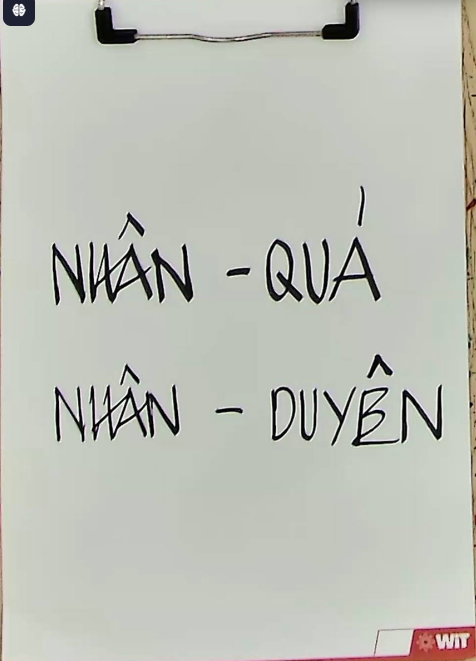 NHÂN - QUÁ
NHÂN - DUYÊN
WIT